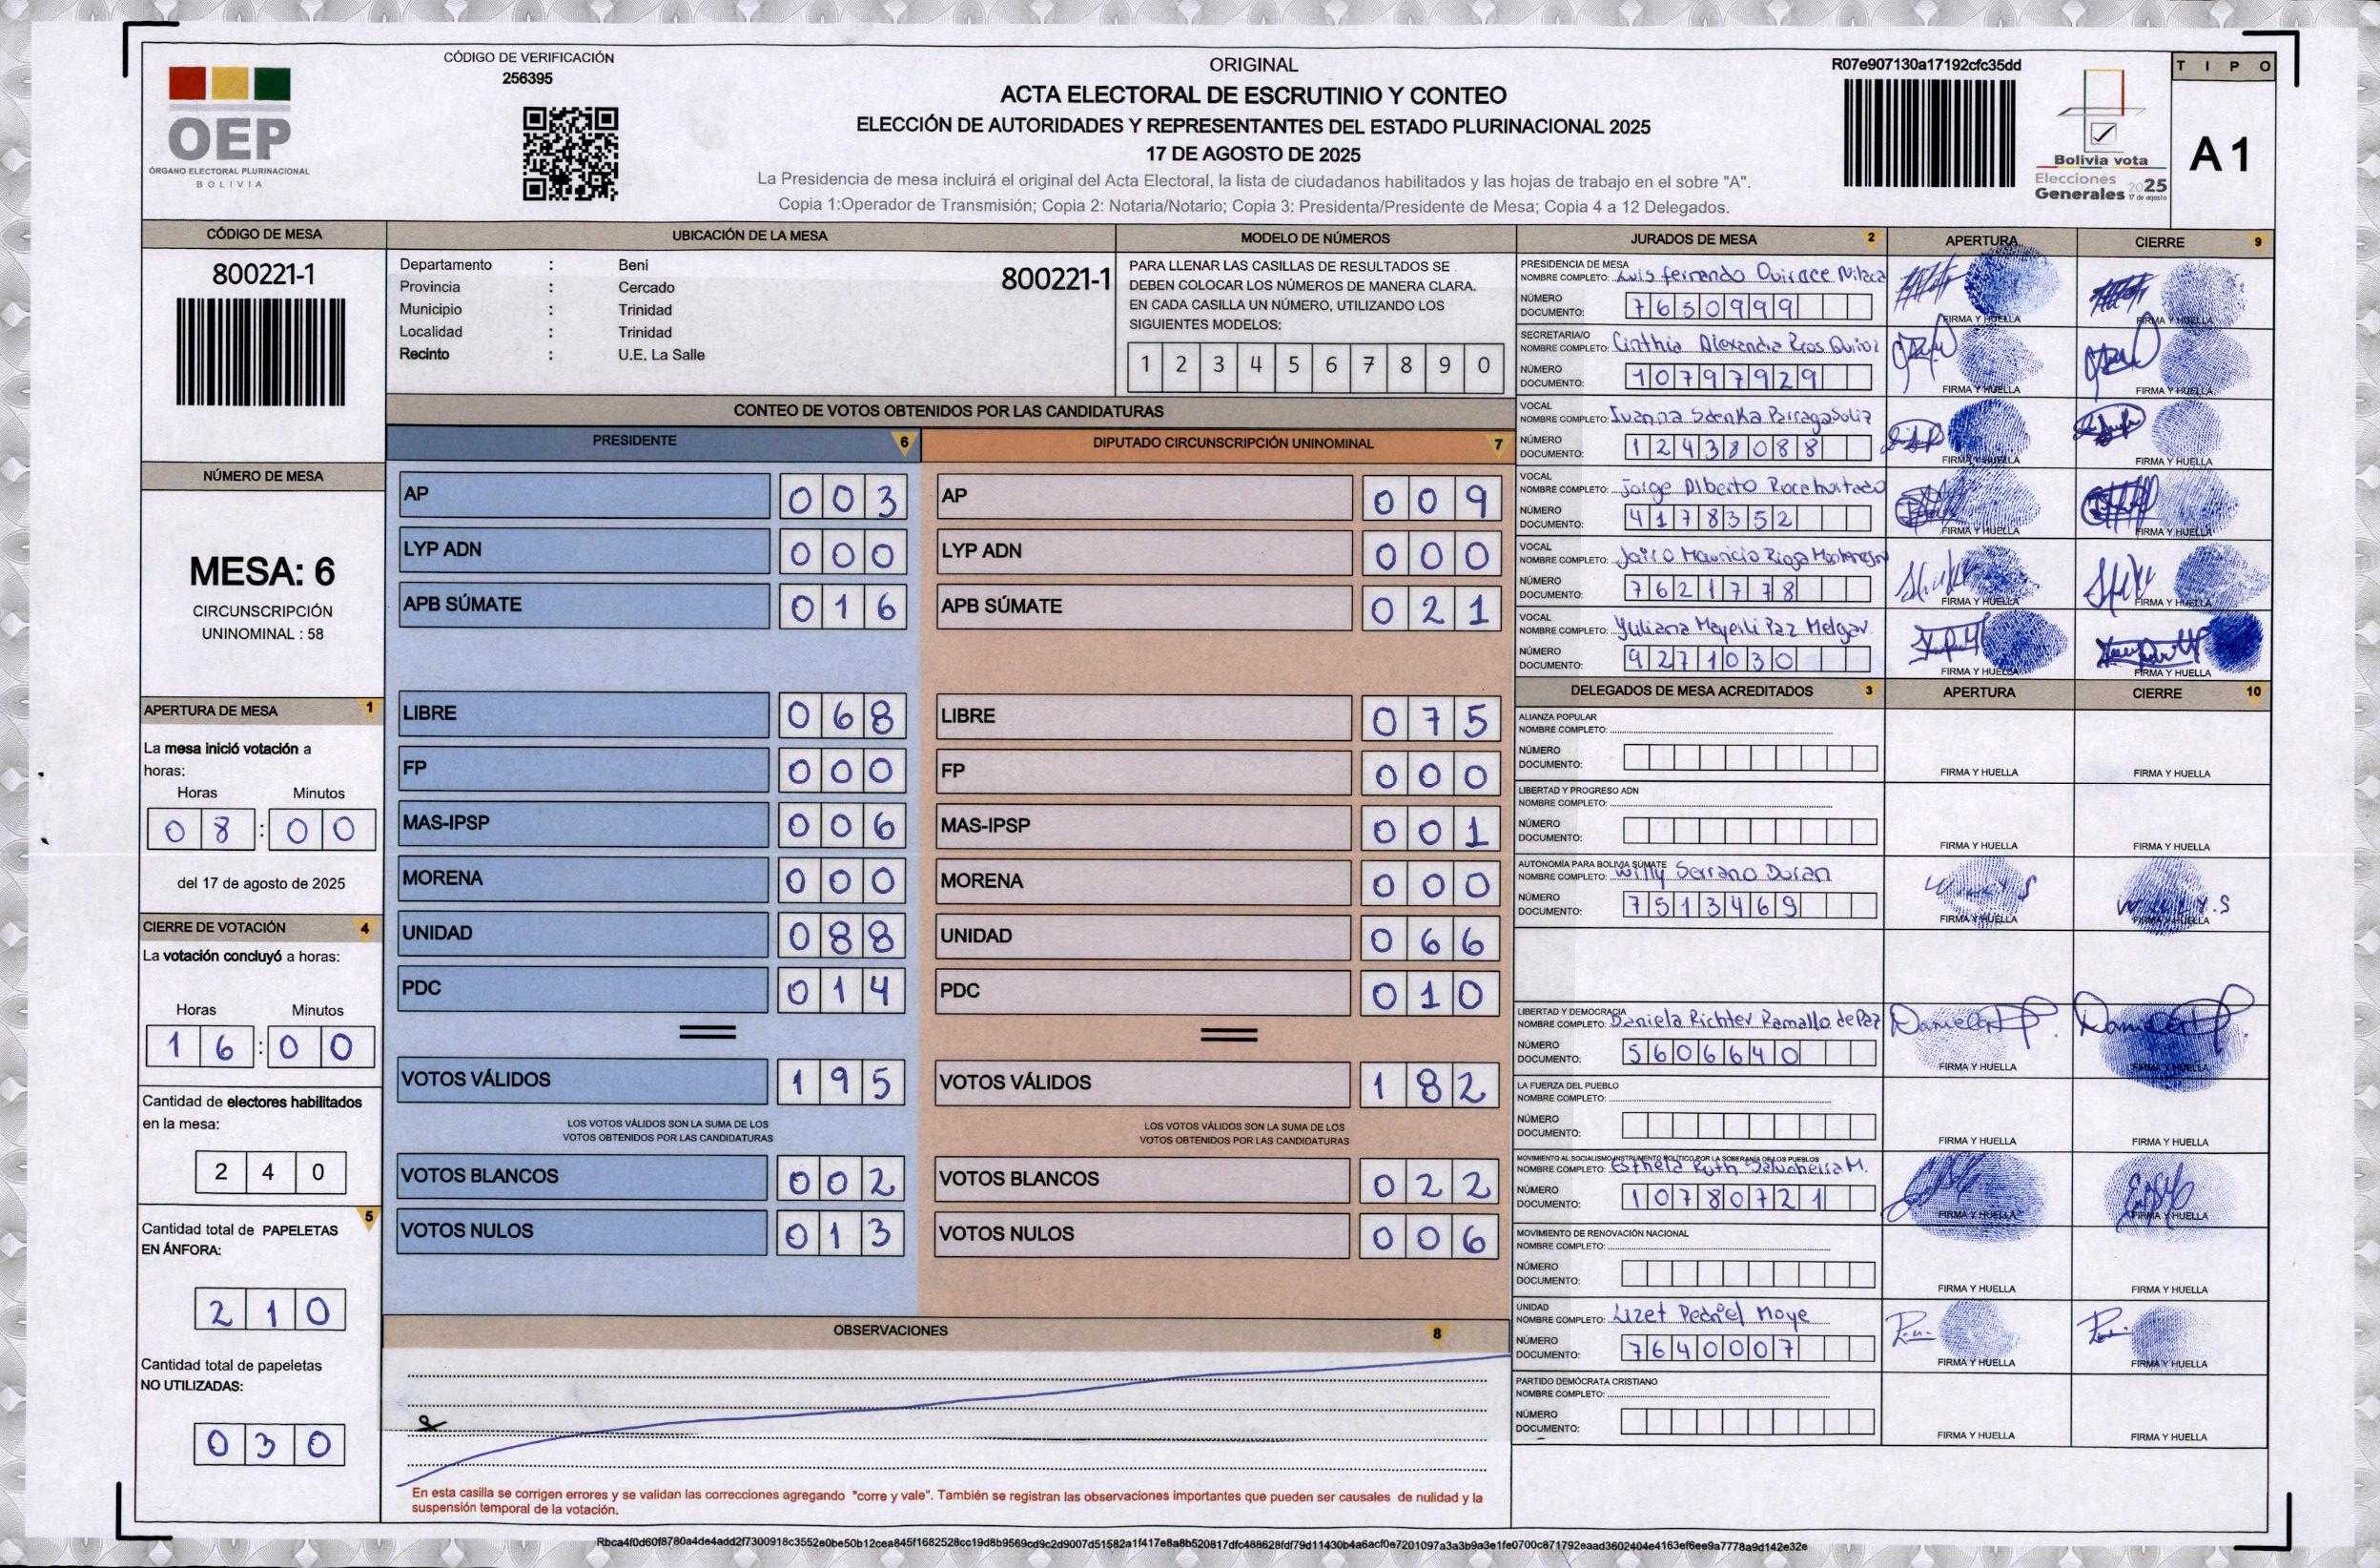 CÓDIGO DE VERIFICACIÓN
256395
OEP
ÓRGANO ELECTORAL PLURINACIONAL
BOLIVIA
ORIGINAL
ACTA ELECTORAL DE ESCRUTINIO Y CONTEO
ELECCIÓN DE AUTORIDADES Y REPRESENTANTES DEL ESTADO PLURINACIONAL 2025
17 DE AGOSTO DE 2025
La Presidencia de mesa incluirá el original del Acta Electoral, la lista de ciudadanos habilitados y las hojas de trabajo en el sobre "A".
Copia 1:Operador de Transmisión; Copia 2: Notaria/Notario; Copia 3: Presidenta/Presidente de Mesa; Copia 4 a 12 Delegados.
R07e907130a17192cfc35dd
Bolivia vota
Elecciones
Generales 2025
17 de agosto
TIPO
A1
CÓDIGO DE MESA
800221-1
UBICACIÓN DE LA MESA
Departamento : Beni
Provincia : Cercado
Municipio : Trinidad
Localidad : Trinidad
Recinto : U.E. La Salle
800221-1
MODELO DE NÚMEROS
PARA LLENAR LAS CASILLAS DE RESULTADOS SE
DEBEN COLOCAR LOS NÚMEROS DE MANERA CLARA.
EN CADA CASILLA UN NÚMERO, UTILIZANDO LOS
SIGUIENTES MODELOS:
1 2 3 4 5 6 7 8 9 0
NÚMERO DE MESA
MESA: 6
CIRCUNSCRIPCIÓN
UNINOMINAL : 58
APERTURA DE MESA 1
La mesa inició votación a
horas:
Horas Minutos
08:00
del 17 de agosto de 2025
CIERRE DE VOTACIÓN 4
La votación concluyó a horas:
Horas Minutos
16:00
Cantidad de electores habilitados
en la mesa:
240
5
Cantidad total de PAPELETAS
EN ÁNFORA:
210
Cantidad total de papeletas
NO UTILIZADAS:
030
CONTEO DE VOTOS OBTENIDOS POR LAS CANDIDATURAS
PRESIDENTE 6
AP 003
LYP ADN 000
APB SÚMATE 016
LIBRE 068
FP 000
MAS-IPSP 006
MORENA 000
UNIDAD 088
PDC 014
VOTOS VÁLIDOS 195
LOS VOTOS VÁLIDOS SON LA SUMA DE LOS
VOTOS OBTENIDOS POR LAS CANDIDATURAS
VOTOS BLANCOS 002
VOTOS NULOS 013
DIPUTADO CIRCUNSCRIPCIÓN UNINOMINAL 7
AP 009
LYP ADN 000
APB SÚMATE 021
LIBRE 075
FP 000
MAS-IPSP 001
MORENA 000
UNIDAD 066
PDC 010
VOTOS VÁLIDOS 182
LOS VOTOS VÁLIDOS SON LA SUMA DE LOS
VOTOS OBTENIDOS POR LAS CANDIDATURAS
VOTOS BLANCOS 022
VOTOS NULOS 006
OBSERVACIONES 8
En esta casilla se corrigen errores y se validan las correcciones agregando "corre y vale". También se registran las observaciones importantes que pueden ser causales de nulidad y la
suspensión temporal de la votación.
JURADOS DE MESA 2 APERTURA CIERRE 9
PRESIDENCIA DE MESA
NOMBRE COMPLETO: Luis fernando
NÚMERO
DOCUMENTO: 7650999
FIRMA Y HUELLA FIRMA Y HUELLA
SECRETARIA/O
NOMBRE COMPLETO: Cinthia Alexandra
NÚMERO
DOCUMENTO: 10797929
FIRMA Y HUELLA FIRMA Y HUELLA
VOCAL
NOMBRE COMPLETO: Ivanna
NÚMERO
DOCUMENTO: 12438088
FIRMA Y HUELLA FIRMA Y HUELLA
VOCAL
NOMBRE COMPLETO: Jorge Alberto
NÚMERO
DOCUMENTO: 4178352
FIRMA Y HUELLA FIRMA Y HUELLA
VOCAL
NOMBRE COMPLETO: Jairo Mauricio
NÚMERO
DOCUMENTO: 7621778
FIRMA Y HUELLA FIRMA Y HUELLA
VOCAL
NOMBRE COMPLETO: Yuliana Mayerli Paz Melgar
NÚMERO
DOCUMENTO: 9271030
FIRMA Y HUELLA FIRMA Y HUELLA
DELEGADOS DE MESA ACREDITADOS 3 APERTURA CIERRE 10
ALIANZA POPULAR
NOMBRE COMPLETO:
NÚMERO
DOCUMENTO:
FIRMA Y HUELLA FIRMA Y HUELLA
LIBERTAD Y PROGRESO ADN
NOMBRE COMPLETO:
NÚMERO
DOCUMENTO:
FIRMA Y HUELLA FIRMA Y HUELLA
AUTONOMÍA PARA BOLIVIA SÚMATE
NOMBRE COMPLETO: Willy Serrano Duran
NÚMERO
DOCUMENTO: 7513469
FIRMA Y HUELLA FIRMA Y HUELLA
LIBERTAD Y DEMOCRACIA
NOMBRE COMPLETO: Daniela Richter Ramallo de Paz
NÚMERO
DOCUMENTO: 5606640
FIRMA Y HUELLA FIRMA Y HUELLA
LA FUERZA DEL PUEBLO
NOMBRE COMPLETO:
NÚMERO
DOCUMENTO:
FIRMA Y HUELLA FIRMA Y HUELLA
MOVIMIENTO AL SOCIALISMO-INSTRUMENTO POLÍTICO POR LA SOBERANÍA DE LOS PUEBLOS
NOMBRE COMPLETO: Esthela Ruth
NÚMERO
DOCUMENTO: 10780721
FIRMA Y HUELLA FIRMA Y HUELLA
MOVIMIENTO DE RENOVACIÓN NACIONAL
NOMBRE COMPLETO:
NÚMERO
DOCUMENTO:
FIRMA Y HUELLA FIRMA Y HUELLA
UNIDAD
NOMBRE COMPLETO: Lizet Pedriel Moye
NÚMERO
DOCUMENTO: 7640007
FIRMA Y HUELLA FIRMA Y HUELLA
PARTIDO DEMÓCRATA CRISTIANO
NOMBRE COMPLETO:
NÚMERO
DOCUMENTO:
FIRMA Y HUELLA FIRMA Y HUELLA